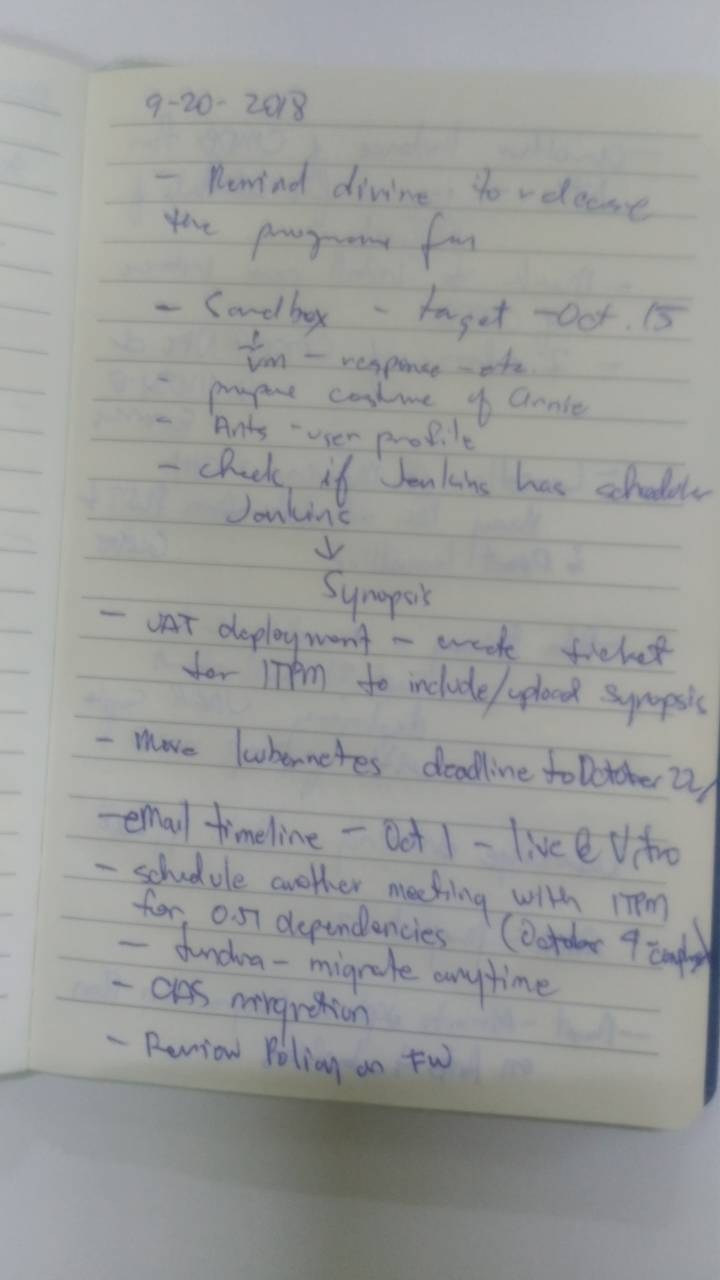 9-20-2018
- Remind divine to release
the programs for
- Sandbox - target - Oct. 15
vm - response
- prepare costume of Annie
- Ants - user profile
- check if Jenkins has scheduler
Jenkins
↓
Synopsis
- UAT deployment - create ticket
for ITPM to include/upload synopsis
- Move kubernetes deadline to October 22
- email timeline - Oct 1 - live @ Vitro
- schedule another meeting with ITPM
for dependencies (October 9
- tundra - migrate anytime
- CAS migration
- Review Policy on FW